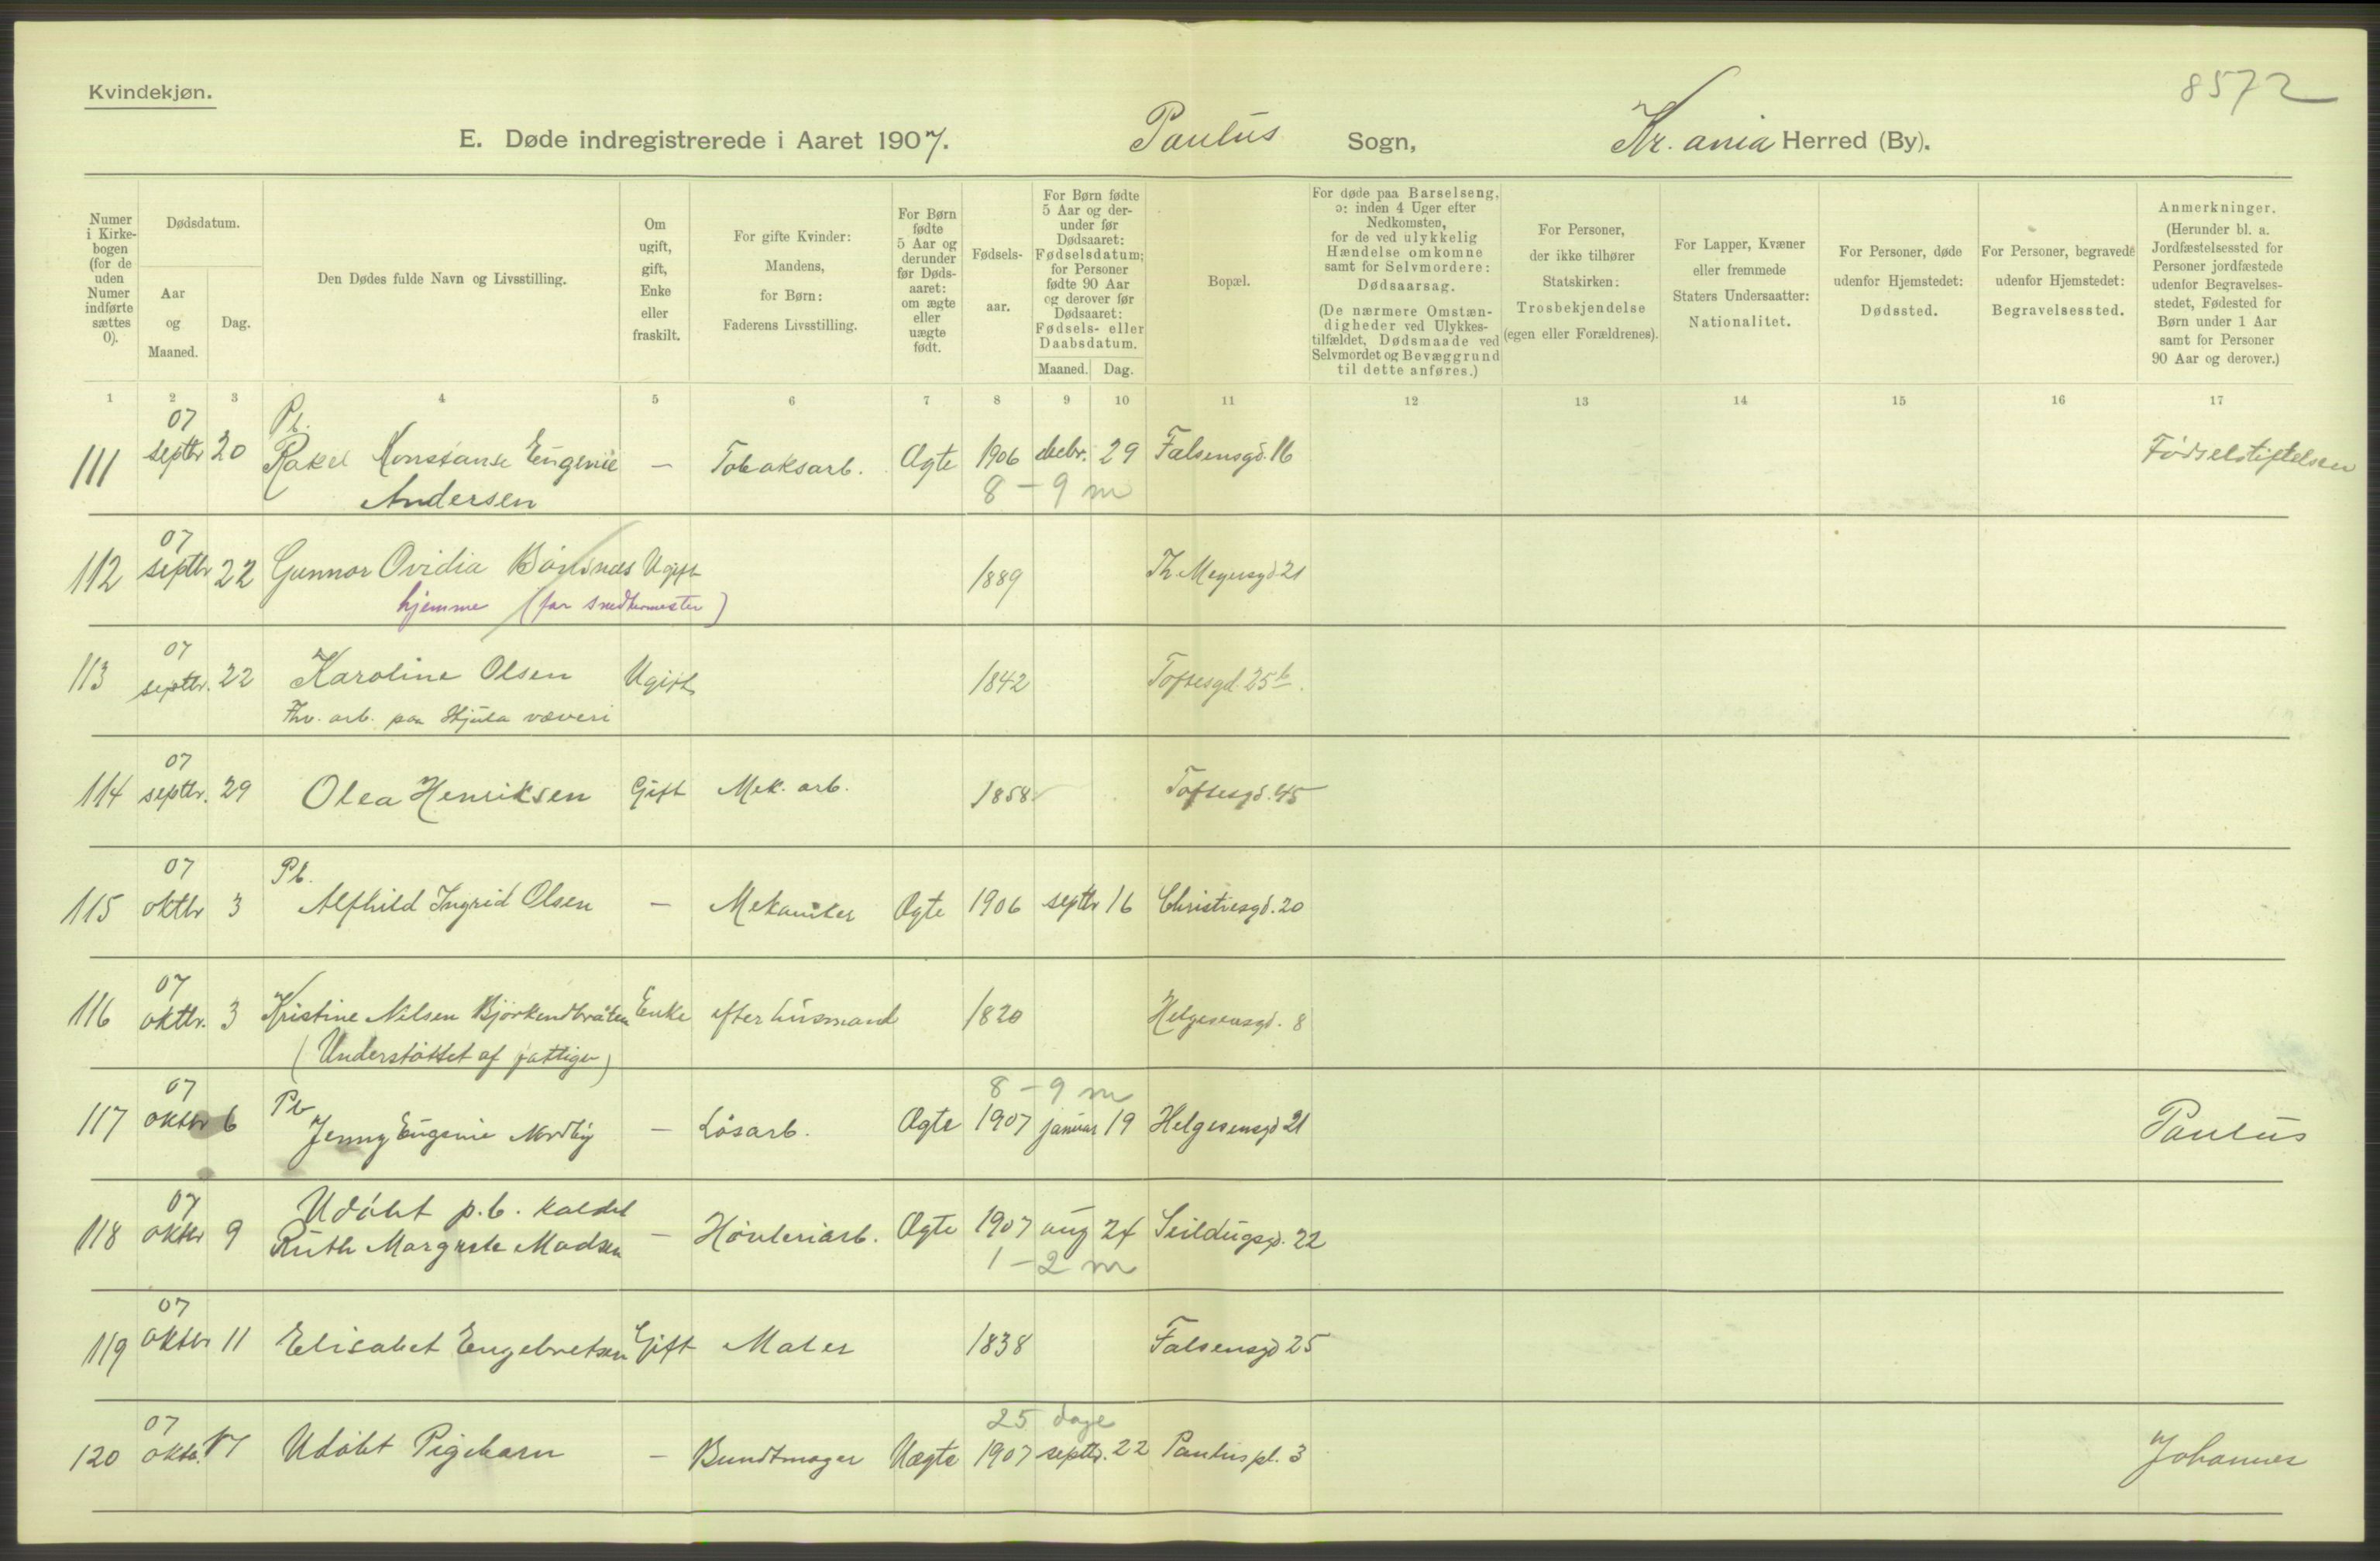 Kvindekjøn.
8572
E. Døde indregistrerede i Aaret 1907. Paulus Sogn, Kr.ania Herred (By).
Numer i Kirkebogen (for de uden Numer indførte sættes 0).
Dødsdatum.
Aar og Maaned.
Dag.
Den Dødes fulde Navn og Livsstilling.
Om ugift, gift, Enke eller fraskilt.
For gifte Kvinder: Mandens, for Børn: Faderens Livsstilling.
For Børn fødte 5 Aar og derunder før Dødsaaret: om ægte eller uægte født.
Fødselsaar.
For Børn fødte 5 Aar og derunder før Dødsaaret: Fødselsdatum; for Personer fødte 90 Aar og derover før Dødsaaret: Fødsels- eller Daabsdatum.
Maaned. Dag.
Bopæl.
For døde paa Barselseng, ɔ: inden 4 Uger efter Nedkomsten, for de ved ulykkelig Hændelse omkomne samt for Selvmordere: Dødsaarsag.
(De nærmere Omstændigheder ved Ulykkestilfældet, Dødsmaade ved Selvmordet og Bevæggrund til dette anføres.)
For Personer, der ikke tilhører Statskirken: Trosbekjendelse (egen eller Forældrenes).
For Lapper, Kvæner eller fremmede Staters Undersaatter: Nationalitet.
For Personer, døde udenfor Hjemstedet: Dødssted.
For Personer, begravede udenfor Hjemstedet: Begravelsessted.
Anmerkninger. (Herunder bl. a. Jordfæstelsessted for Personer jordfæstede udenfor Begravelsesstedet, Fødested for Børn under 1 Aar samt for Personer 90 Aar og derover.)
1 2 3 4 5 6 7 8 9 10 11 12 13 14 15 16 17
07 Pb.
111 septbr 20 Rakel Konstanse Eugenie — Tobaksarb. Ægte 1906 decbr. 29 Falsensgd. 16 Fødselstiftelsen
Andersen 8 – 9 m
07
112 septbr 22 Gunnor Ovidia Ugift 1889 Th. Meyersgd 21
hjemme (far snedkermester)
07
113 septbr. 22 Karoline Olsen Ugift 1842 Toftesgd. 25 b.
Fhv. arb. paa Hjula væveri
07
114 septbr. 29 Olea Henriksen Gift Mek. arb. 1858 Toftesgd. 45
07 Pb.
115 oktbr 3 Alfhild Ingrid Olsen — Mekaniker Ægte 1906 septbr 16 Christiesgd. 20
07
116 oktbr. 3 Kristine Nilsen Bjørkendbråten Enke efter husmand 1820 Helgesensgd. 8
(Understøttet af fattigv)
07 Pb 8 – 9 m
117 oktbr 6 Jenny Eugenie Nordby — Løsarb. Ægte 1907 januar 19 Helgesensgd 21 Paulus
07 Udøbt p.b. kaldet
118 oktbr 9 Ruth Margrete Madsen — Høvleriarb. Ægte 1907 aug 24 Seildugsgd. 22
1 – 2 m
07
119 oktbr 11 Elisabet Engebretsen Gift Maler 1838 Falsensgd 25
07 25 dage
120 oktb. 17 Udøbt Pigebarn — Bundtmager Uægte 1907 septbr. 22 Paulus pl. 3 Johannes